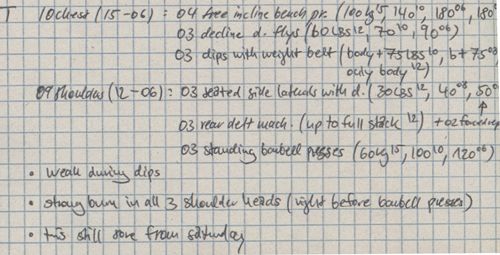 T 10 chest (15-06) : 04 free incline bench pr. (100kg¹⁵, 140¹⁰, 180⁰⁶, 180
03 decline d. flys (60LBS¹², 70¹⁰, 90⁰⁶)
03 dips with weight belt (body + 75LBS¹⁰, b + 75⁰⁸
only body¹²)
09 shoulders (12-06) : 03 seated side laterals with d. (30LBS¹², 40⁰⁸, 50
03 rear delt mach. (up to full stack¹²) + 02 forced rep
03 standing barbell presses (60kg¹⁵, 100¹⁰, 120⁰⁶)
• weak during dips
• strong burn in all 3 shoulder heads (right before barbell presses)
• tris still sore from saturday